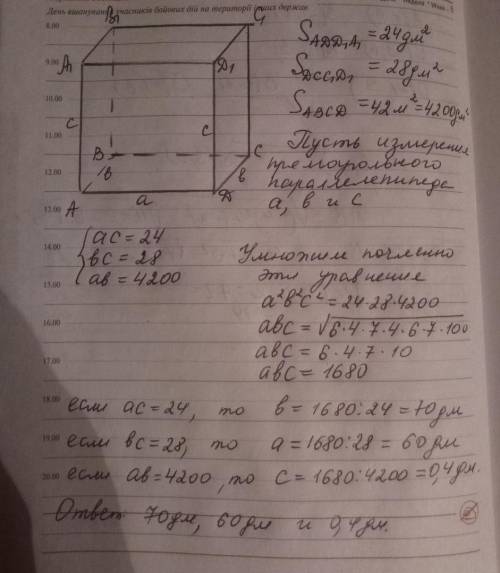 День вшанування учасників бойових дій на території інших держав
8.00
9.00
10.00
11.00
12.00
13.00
14.00
15.00
16.00
17.00
18.00
19.00
20.00
B₁
C₁
A₁
D₁
c
c
B
в
C
в
A
a
D
S_ADD₁A₁ = 24дм²
S_DCC₁D₁ = 28дм²
S_ABCD = 42м² = 4200дм²
Пусть измерения
прямоугольного
параллелепипеда
a, в и c
{ac = 24
вc = 28
aв = 4200
Умножим почленно
эти уравнения
a²в²c² = 24·28·4200
aвc = √6·4·7·4·6·7·100
aвc = 6·4·7·10
aвc = 1680
если ac = 24, то в = 1680:24 = 70дм
если вc = 28, то a = 1680:28 = 60дм
если aв = 4200, то c = 1680:4200 = 0,4дм.
Ответ: 70дм, 60дм и 0,4дм.